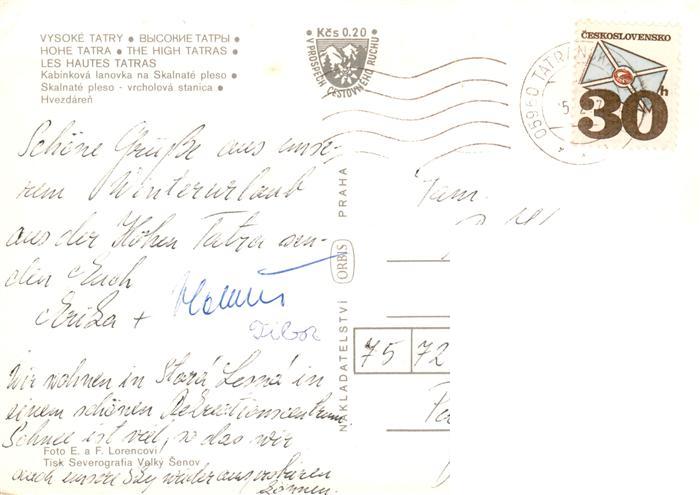 VYSOKÉ TATRY • ВЫСОКИЕ ТАТРЫ •
HOHE TATRA • THE HIGH TATRAS •
LES HAUTES TATRAS
Kabínková lanovka na Skalnaté pleso •
Skalnaté pleso - vrcholová stanica •
Hvezdáreň
Kčs 0.20
V PROSPECH CESTOVNÉHO RUCHU
ČESKOSLOVENSKO
30h
05960 TATRANSKÁ
Schöne Grüße aus unse-
rem Winterurlaub
aus der Hohen Tatra sen-
den Euch
Erika +
Tibor
Wir wohnen in Stará Lesná in
einem schönen Rekreationscentrum
Schnee ist viel, so das wir
auch unsere Sky wieder ausprobieren
können.
Foto E. a F. Lorencovi
Tisk Severografia Velký Šenov
NAKLADATELSTVÍ ORBIS PRAHA
Fam.
75 72